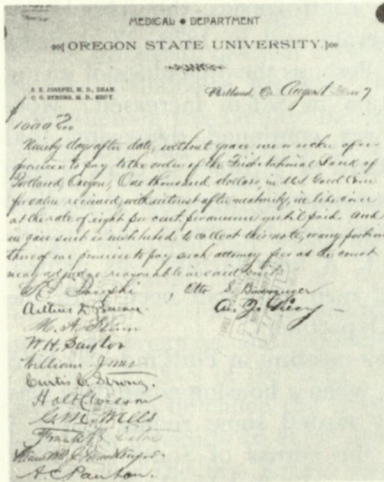 MEDICAL DEPARTMENT
OREGON STATE UNIVERSITY.
S. E. JOSEPHI, M. D., DEAN.
C. C. STRONG, M. D., SEC'Y.
Portland, Or. August
$1000
Ninety days after date, without grace we or either of us
promise to pay to the order of the First National Bank of
Portland, Oregon, One thousand dollars, in U.S. Gold Coin
for value received, with interest after maturity, in like coin
at the rate of eight per cent. per annum until paid. And
in case suit is instituted to collect this note, or any portion
thereof we promise to pay such attorney fees as the court
may adjudge reasonable in said suit.
S. E. Josephi, Otto S. Binswanger
M. A. Flinn
W. H. Saylor
William Jones
Curtis C. Strong.
Holt C. Wilson
G. M. Wells
A. C. Panton.